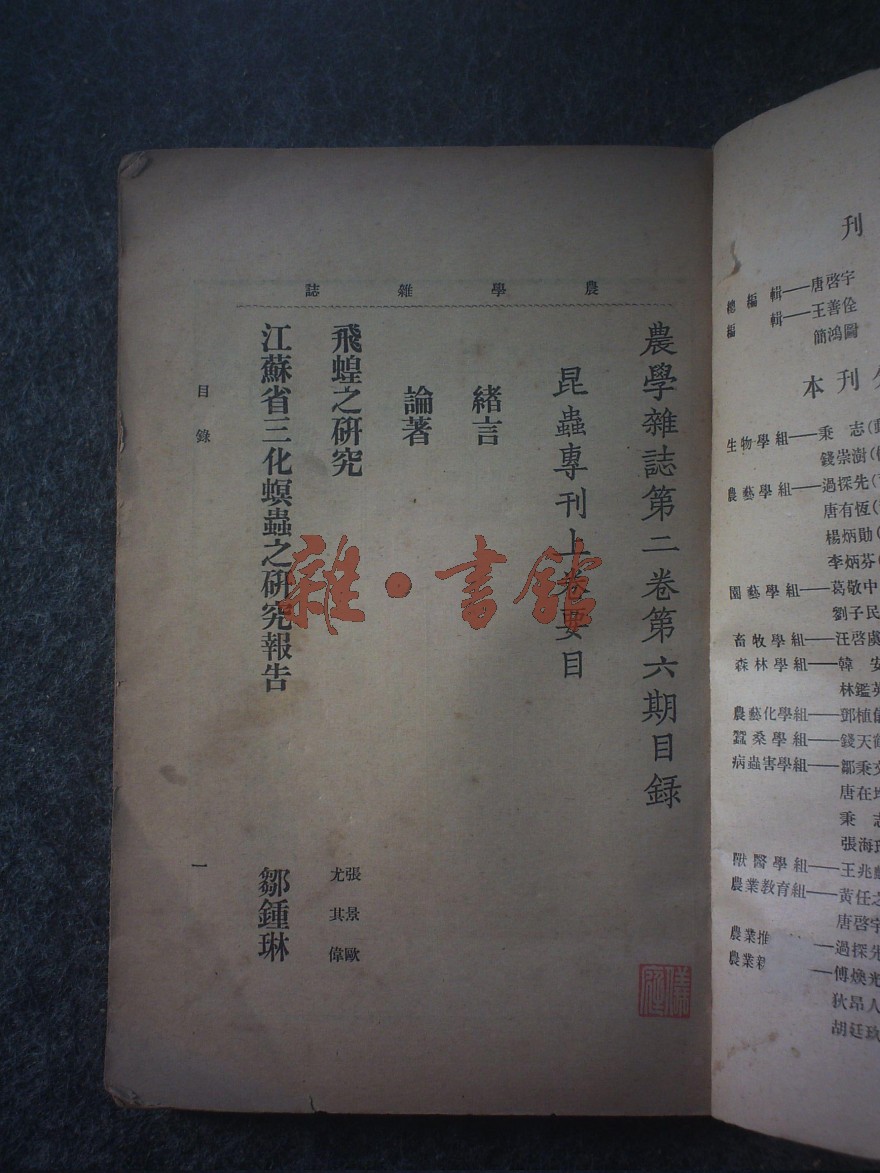 農學雜誌
農學雜誌第二卷第六期目錄
昆蟲專刊上卷要目
緒言
論著
飛蝗之研究
張景歐
尤其偉
江蘇省三化螟蟲之研究報告 鄒鍾琳
目錄
一
雜·書館
刊
總編輯——唐啓宇
編輯——王善佺
簡鴻圖
分刊本
生物學組——秉志
錢崇澍
農藝學組——過探先
唐有恆
楊炳勛
李炳芬
園藝學組——葛敬中
劉子民
畜牧學組——汪啓
森林學組——韓安
林鑑英
農藝化學組——鄧植儀
蠶桑學組——錢天
病蟲害學組——鄒秉文
唐在均
秉志
張海
獸醫學組——王兆
農業教育組——黃任之
唐啓宇
農業推——過探先
農業——傅煥光
狄昂人
胡廷玖